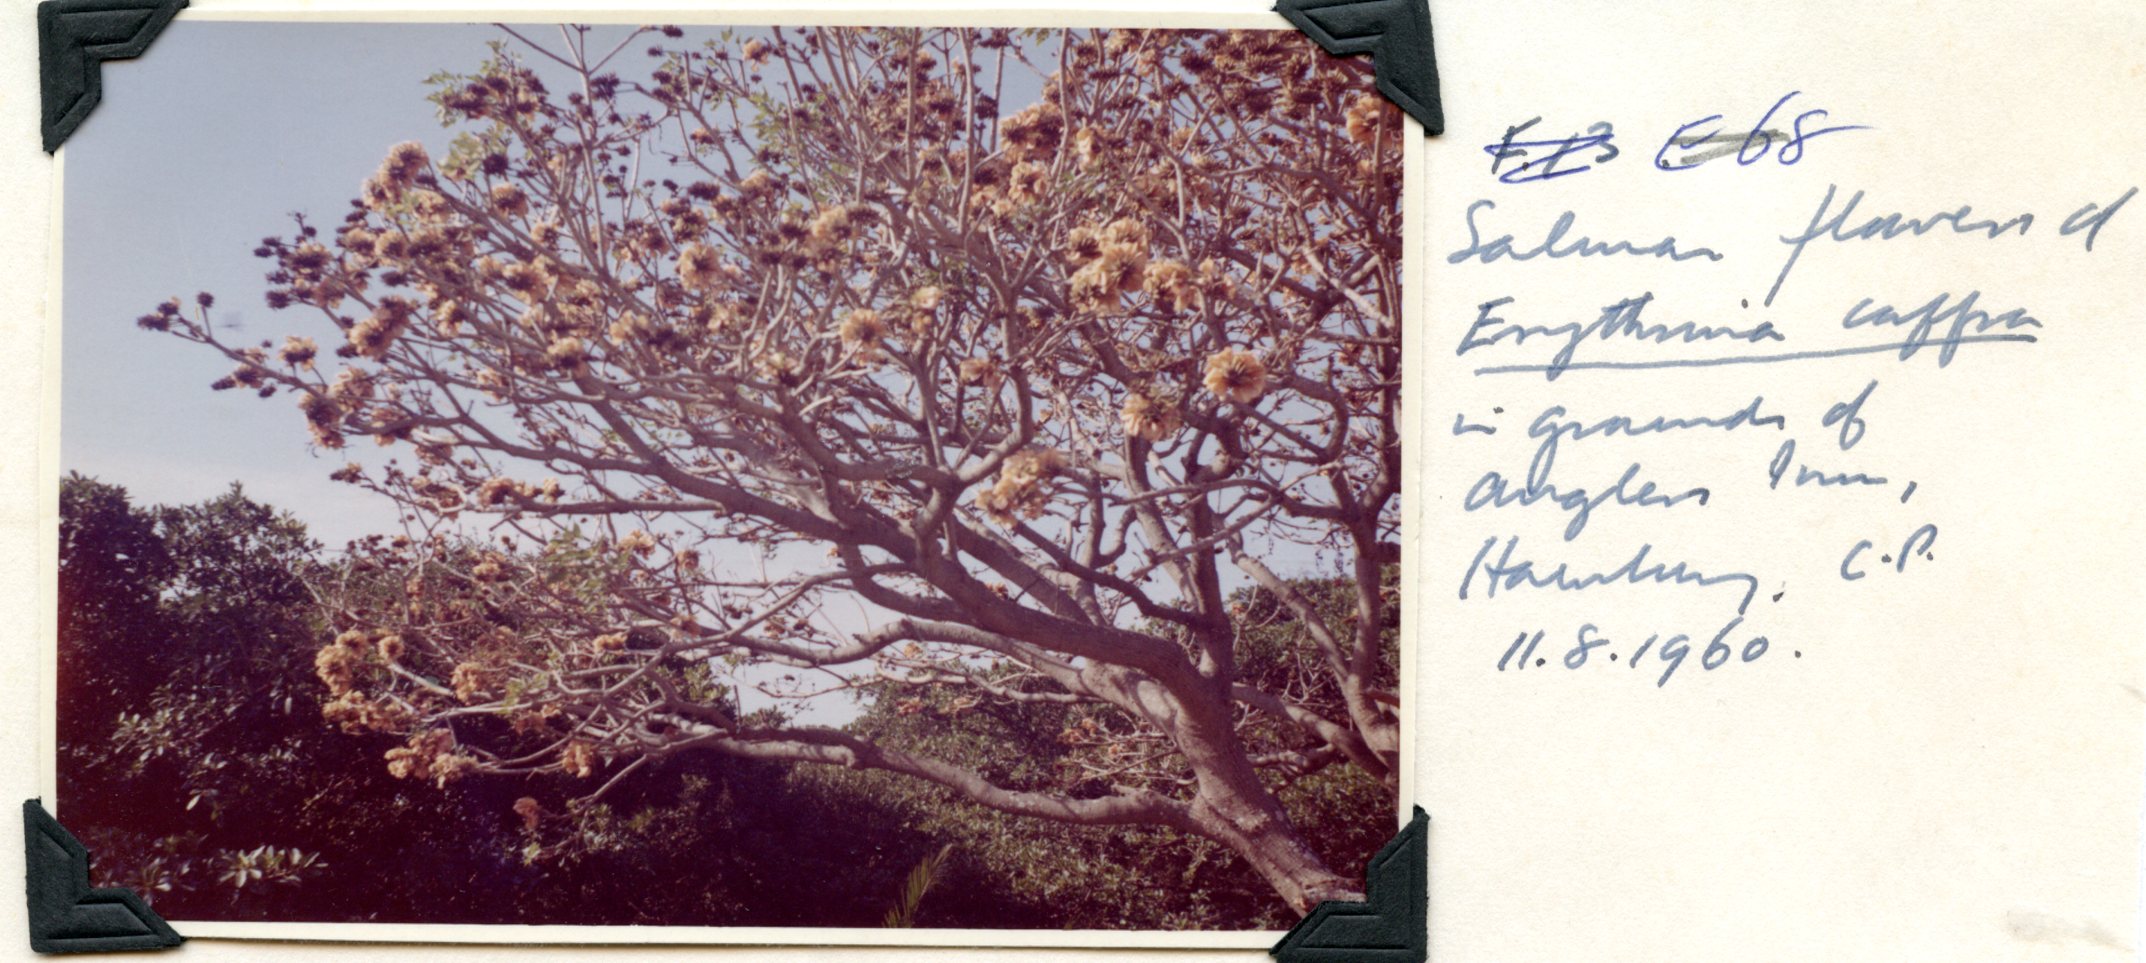 68
Salmon flowers of
Erythrina caffra
in grounds of
Anglers Inn,
Hamburg. C.P.
11.8.1960.